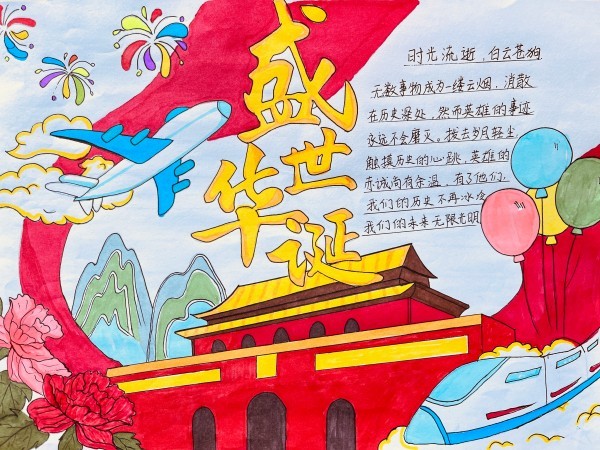 盛世华诞
时光流逝，白云苍狗
无数事物成为一缕云烟，消散
在历史深处，然而英雄的事迹
永远不会磨灭。拨去岁月轻尘
触摸历史的心跳，英雄的
赤诚尚有余温，有了他们，
我们的历史不再冰冷
我们的未来无限光明